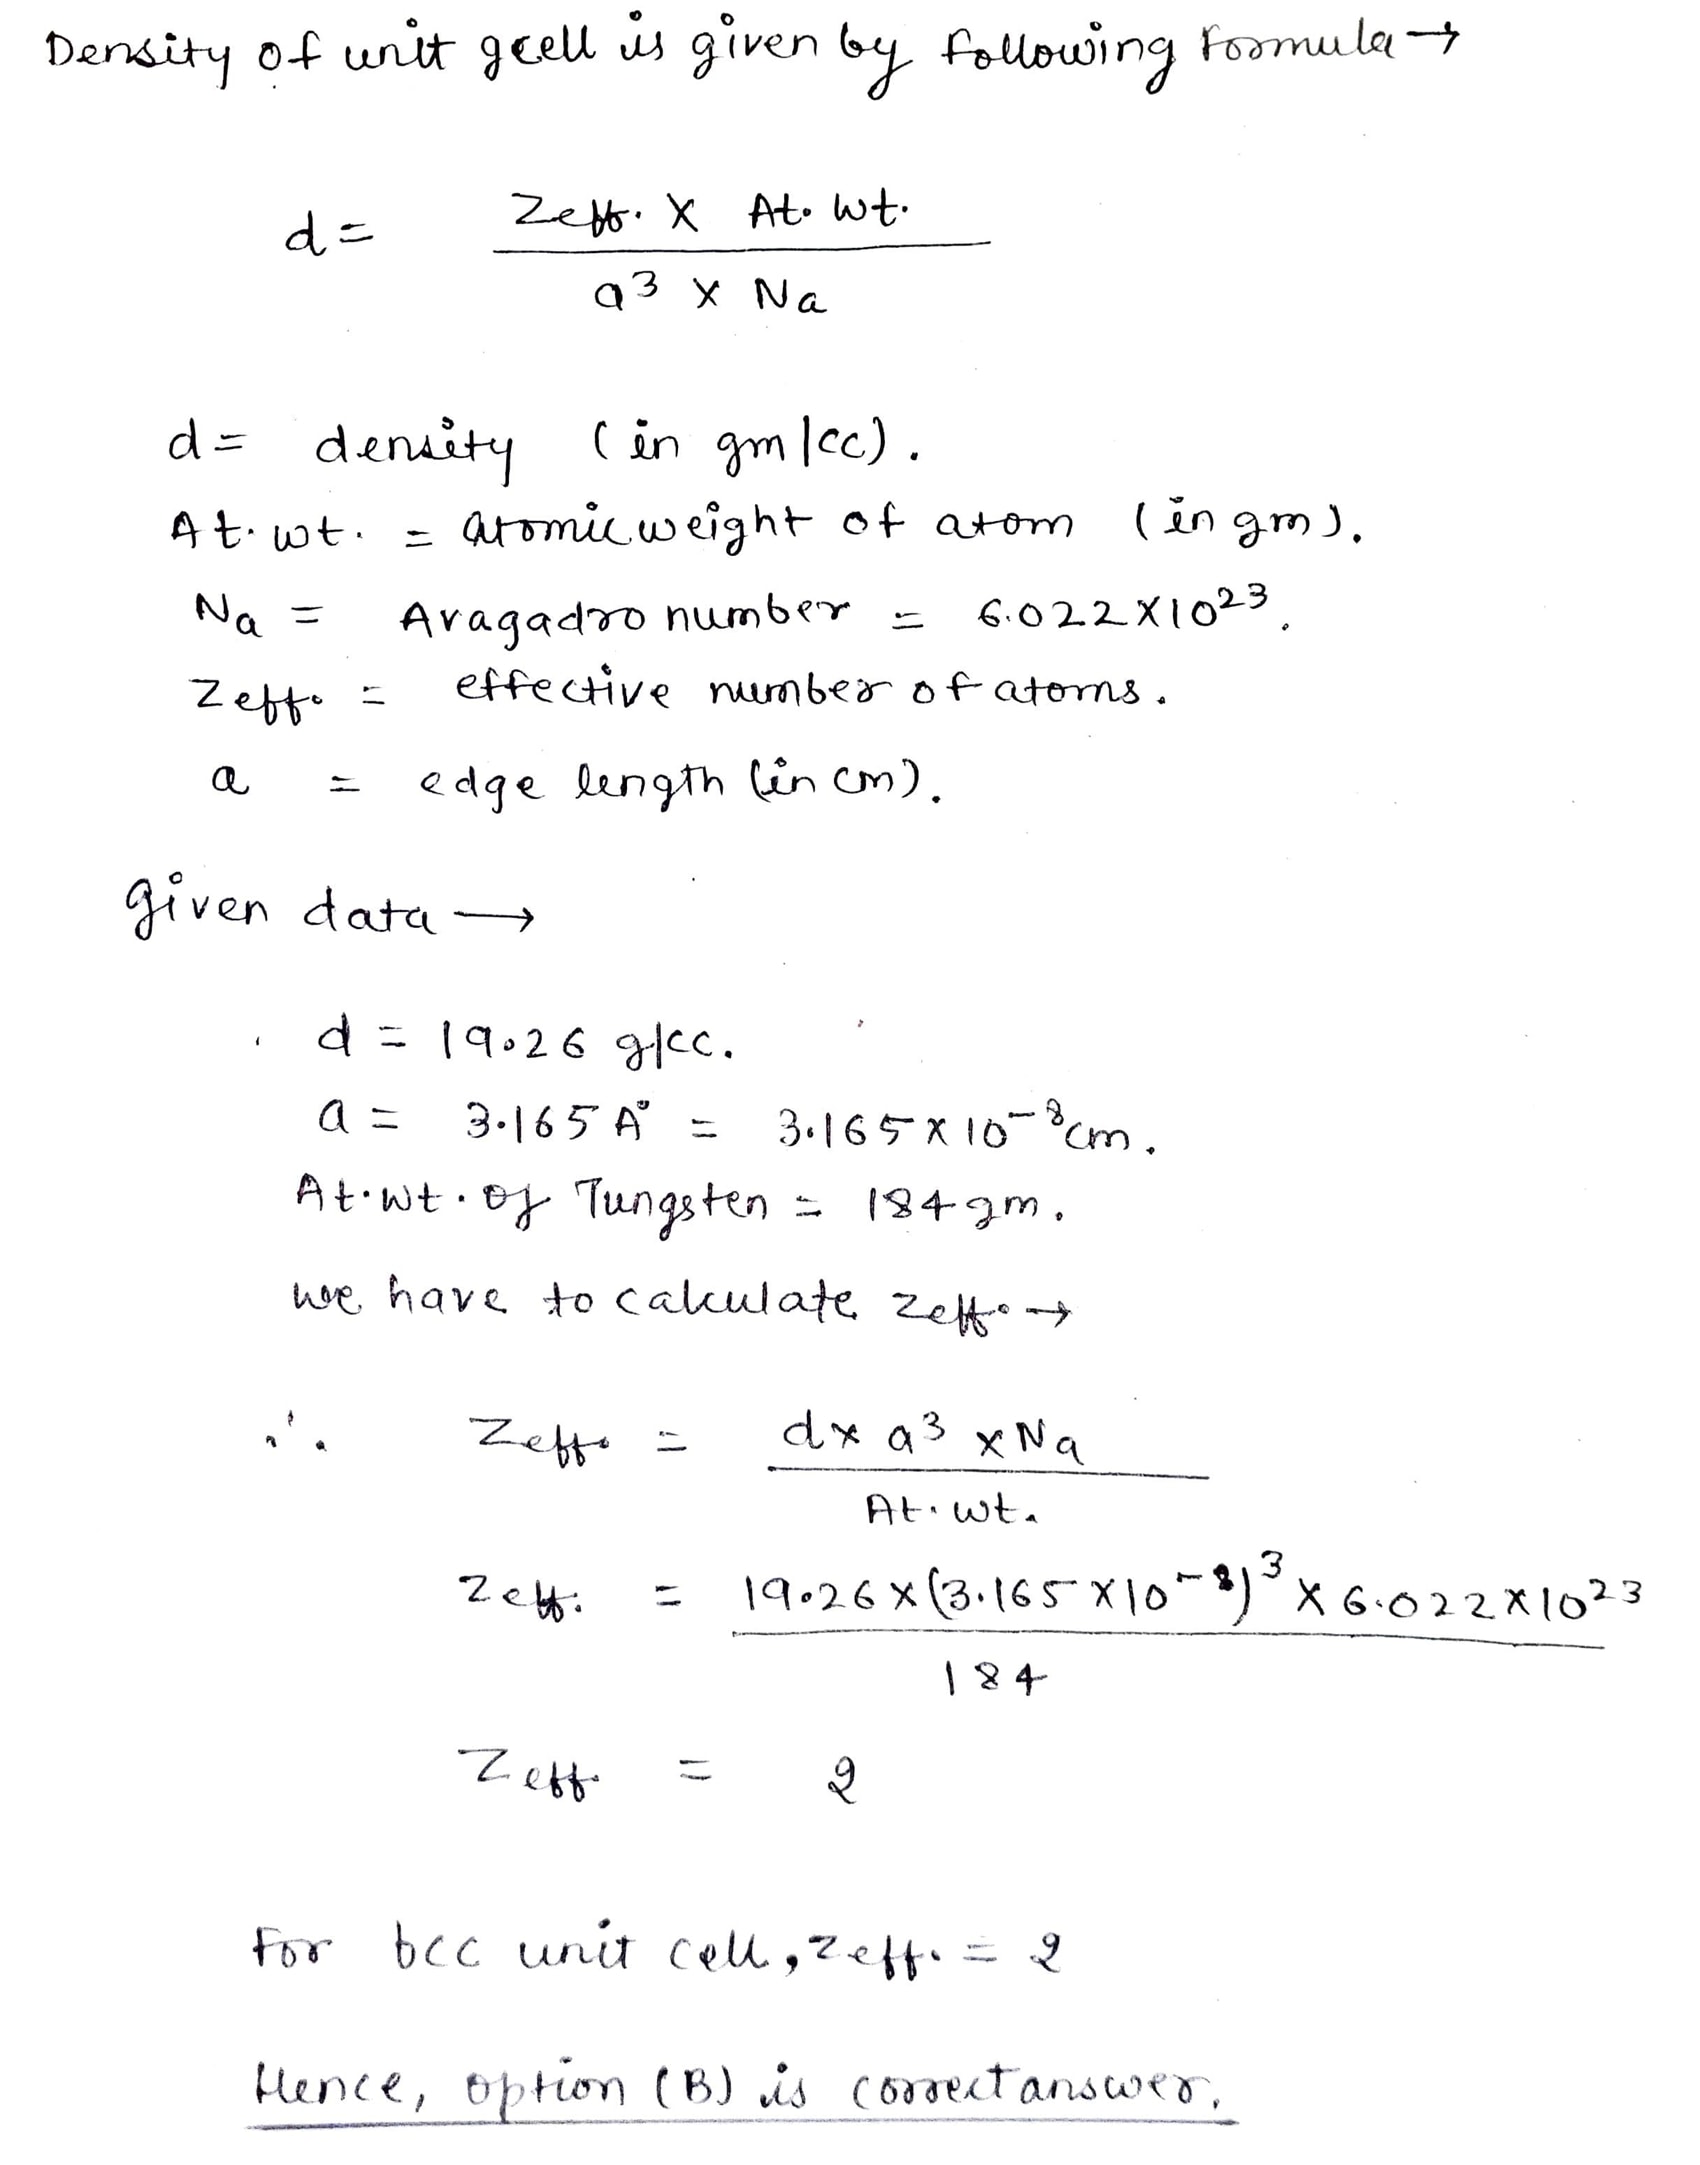 Density of unit gcell is given by following Formula →
d = Zeff. X At. Wt.
a³ X Na
d = density (in gm/cc).
At. wt. = atomic weight of atom (in gm).
Na = Avagadro number = 6.022X10²³.
Zeff. = effective number of atoms.
a = edge length (in cm).
given data →
d = 19.26 g/cc.
a = 3.165 A° = 3.165 x 10⁻⁸ cm.
At. wt. of Tungsten = 184 gm.
we have to calculate Zeff. →
∴ Zeff. = d x a³ x Na
At. wt.
Zeff. = 19.26 x (3.165 X10⁻⁸)³ X 6.022 X1023
184
Zeff. = 2
For bcc unit cell, Zeff. = 2
Hence, option (B) is correct answer.